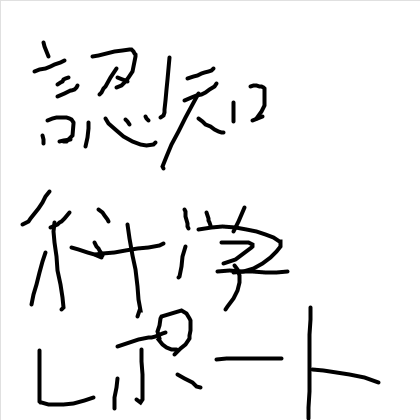 認知
科学
レポート